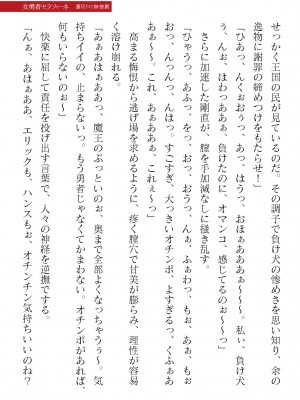 女勇者セラフィーヌ
せっかく王国の民が見ているのだ。その調子で負け犬の惨めさを思い知り、余の
逸物に謝罪の締めつけをもたらせ！」
「ひあっ、んくぉおぅっ、あっ、はうっ、おほぁあああぁ〜〜！　私ぃ、負け犬
ぅ、んぉ、はわっああぁ、負けたのに、オマンコ、感じてるのぉ〜〜っ」
さらに加速した剛直が、膣を手加減なしに掻き乱す。
「ひゃうっ、あふっ、をっ、おっ、おうっ、んぁ、ふぁわっ、もぉ、あぁ、も
ぉっ、んっんっ、んはっ。すごすぎ、大っきいオチンポ、よすぎるっ、くふぁあ
ぁあ〜、これ、あぁああぁ、これぇ〜っ」
高まる悔恨から逃げ場を求めるように、疼く膣穴で甘美が膨らみ、理性が容易
く溶け崩れる。
「あぁあはぁああっ、魔王のぶっといのぉ、奥まで全部よくなっちゃうぅ〜。気
持ちイイの、止まらないっ。もう勇者じゃなくてかまわない。オチンポがあれば、
何もいらないのぉ〜」
快楽に屈して責任を投げ出す言葉で、人々の神経を逆撫でする。
「んぁ、あはぁああ、エリックも、ハンスもぉ、オチンチン気持ちいいのね？